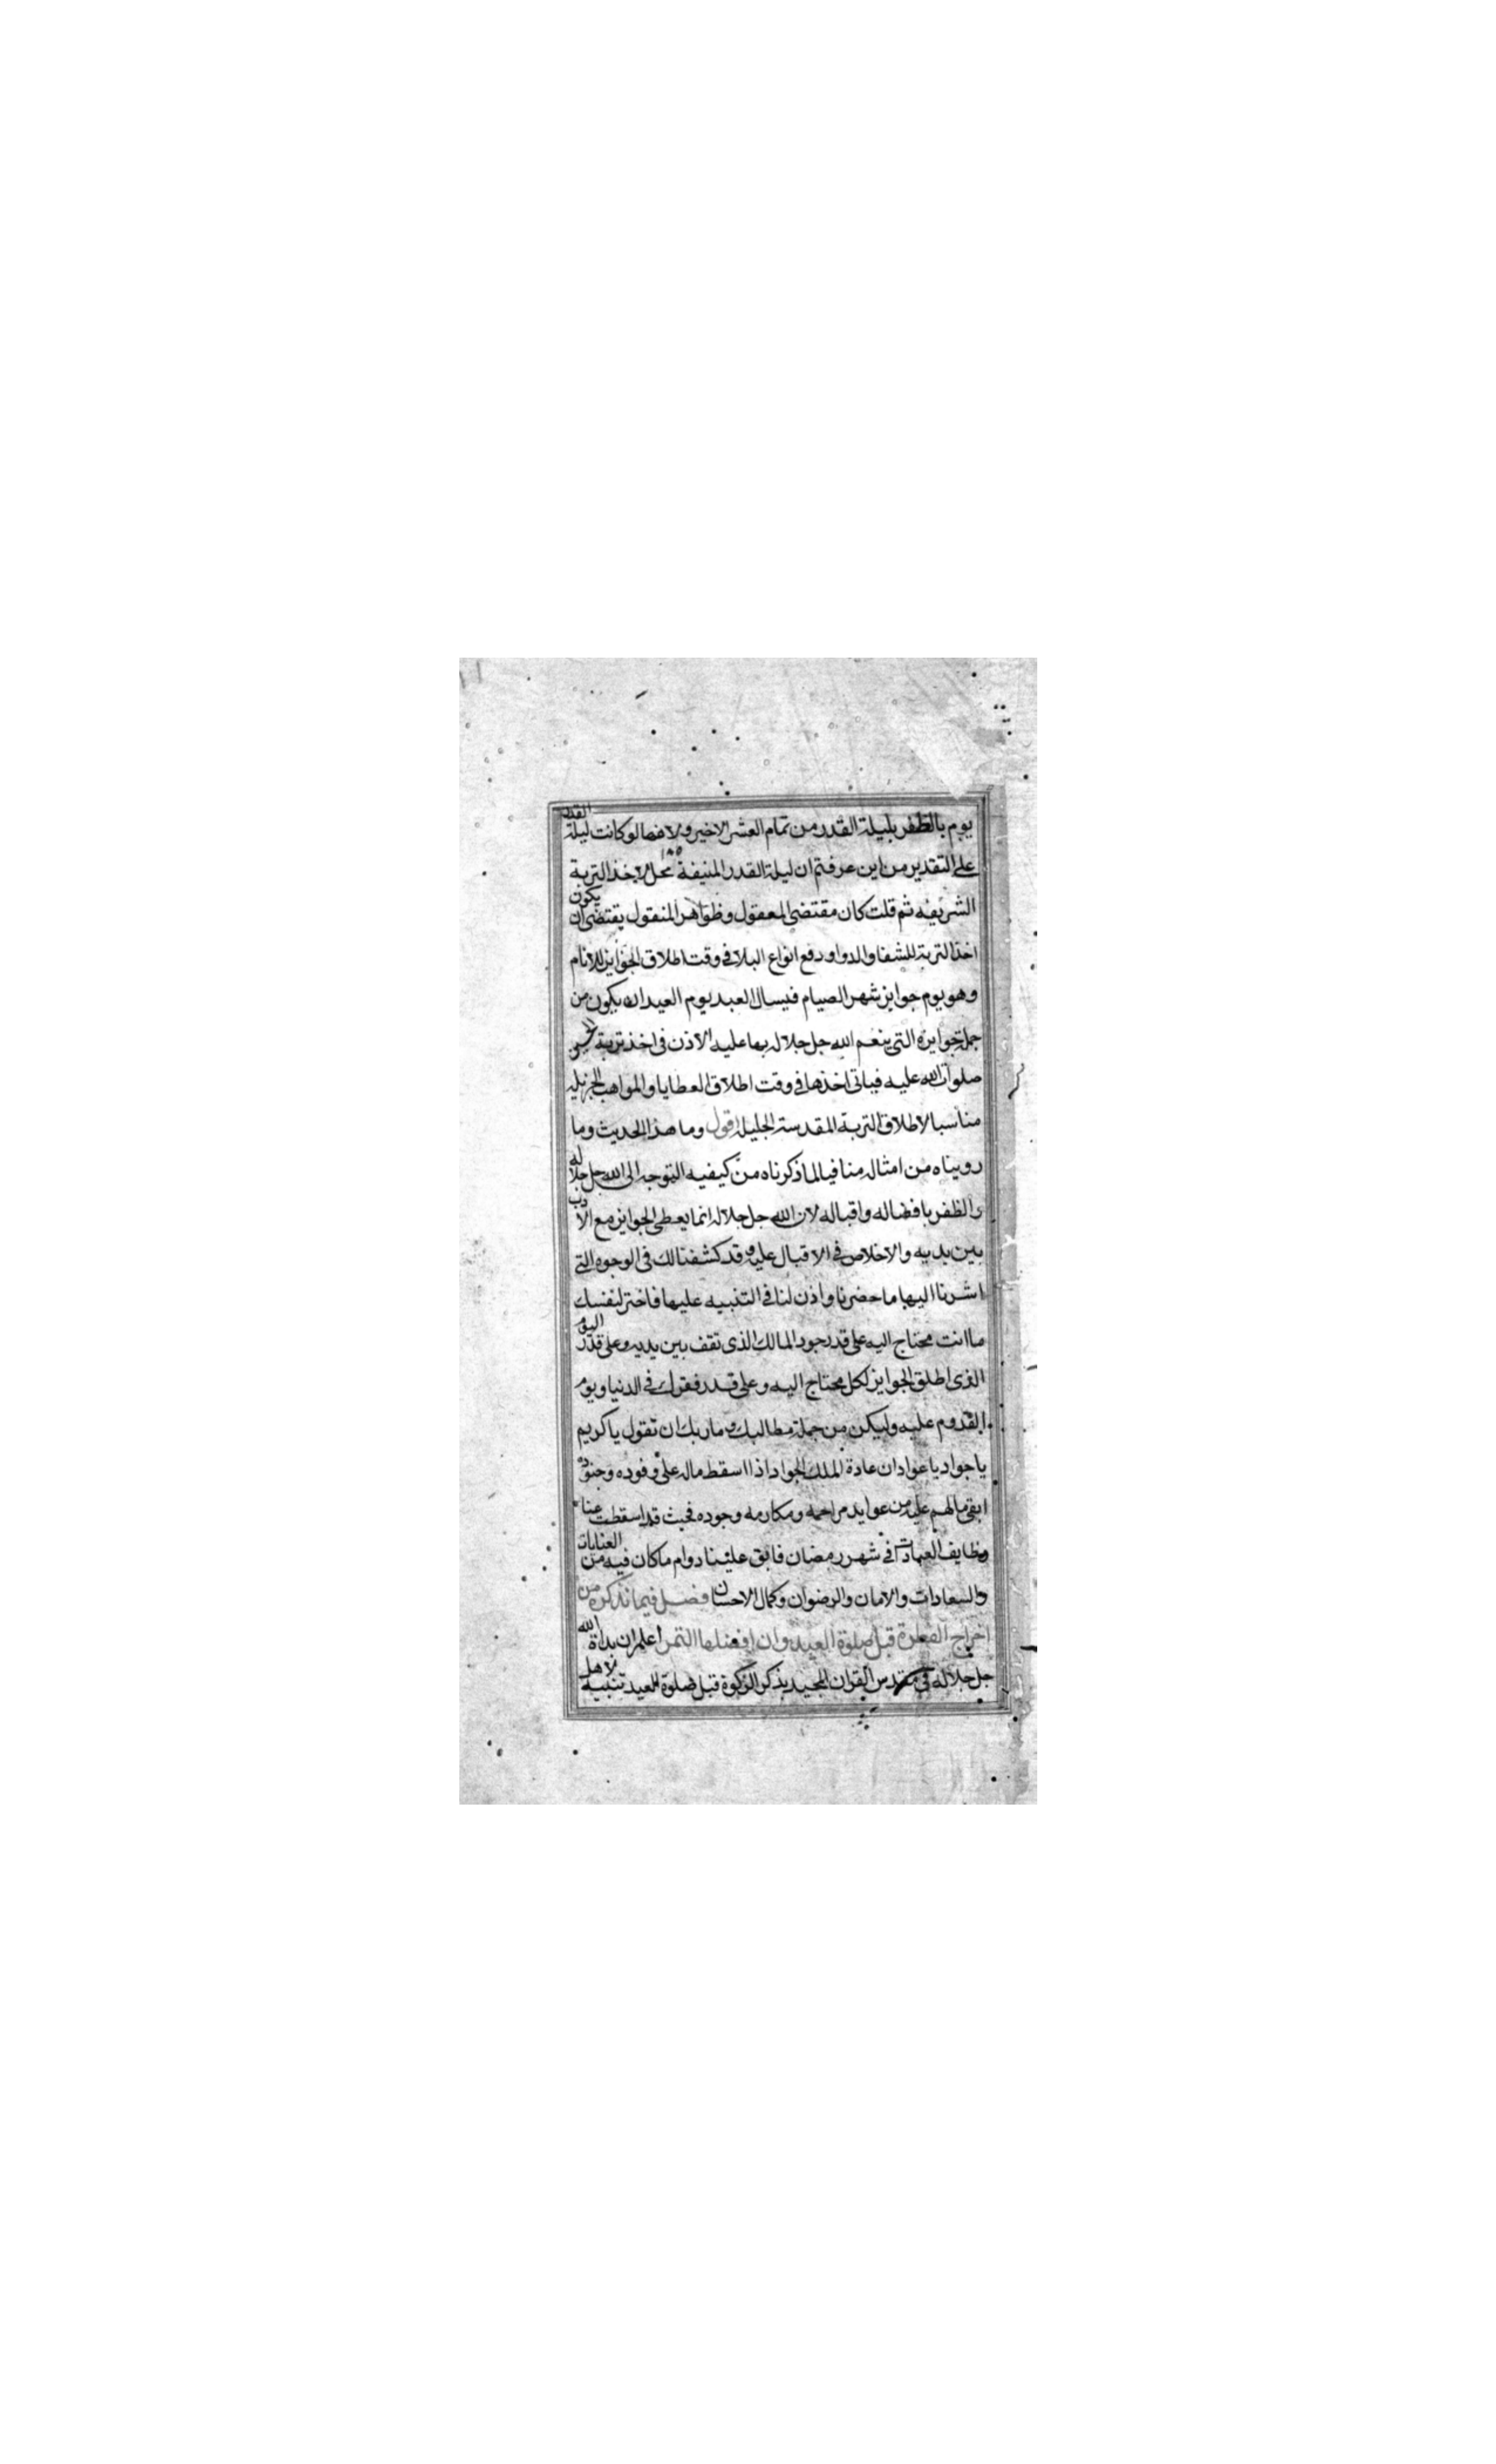 يوم بالظفر بليلة القدر من تمام العشر الاخير ولافضالو كانت ليلة القدر
على التقدير من اين عرفتم ان ليلة القدر المنيفة محل لاخذ التربة
الشريفه ثم قلت كان مقتضى المعقول وظواهر المنقول يقتضى ان يكون
اخذ التربة للشفا والدوا ودفع انواع البلا فى وقت اطلاق الجوايز للانام
وهو يوم جوايز شهر الصيام فيسال العبد يوم العيد ان يكون من
جملة جوايزه التى ينعم الله جل جلاله بها عليه الاذن فى اخذ تربة الحسين
صلوات الله عليه فياتى اخذها فى وقت اطلاق العطايا والمواهب الجزيله
مناسبا لاطلاق التربة المقدسة الجليلة اقول وما هذا الحديث وما
رويناه من امثاله منافيا لما ذكرناه من كيفيه التوجه الى الله جل جلاله
والظفر بافضاله واقباله لان الله جل جلاله انما يعطى الجوايز مع الادب
بين يديه والاخلاص فى الاقبال عليه وقد كشفنا لك فى الوجوه التى
اشرنا اليها ما حضرنا واذن لنا فى التنبيه عليها فاختر لنفسك
ما انت محتاج اليه على قدر جود المالك الذى تقف بين يديه وعلى قدر اليوم
الذى اطلق الجوايز لكل محتاج اليه وعلى قدر فقرك فى الدنيا ويوم
القدوم عليه وليكن من جملة مطالبك وماربك ان تقول يا كريم
يا جواد يا عواد ان عادة الملك الجواد اذا اسقط ماله على وفوده وجنوده
ابقى مالهم عليه من عوايد مراحمه ومكارمه وجوده فحيث قد اسقطت عنا
وظايف العبادات فى شهر رمضان فابق علينا دوام ما كان فيه من العنايات
والسعادات والامان والرضوان وكمال الاحسان فصل فيما نذكره من
اخراج الفطرة قبل صلوة العيد وان افضلها التمر اعلم ان بداة الله
جل جلاله فى مقدس القران المجيد بذكر الزكوة قبل صلوة العيد تنبيه لاهل